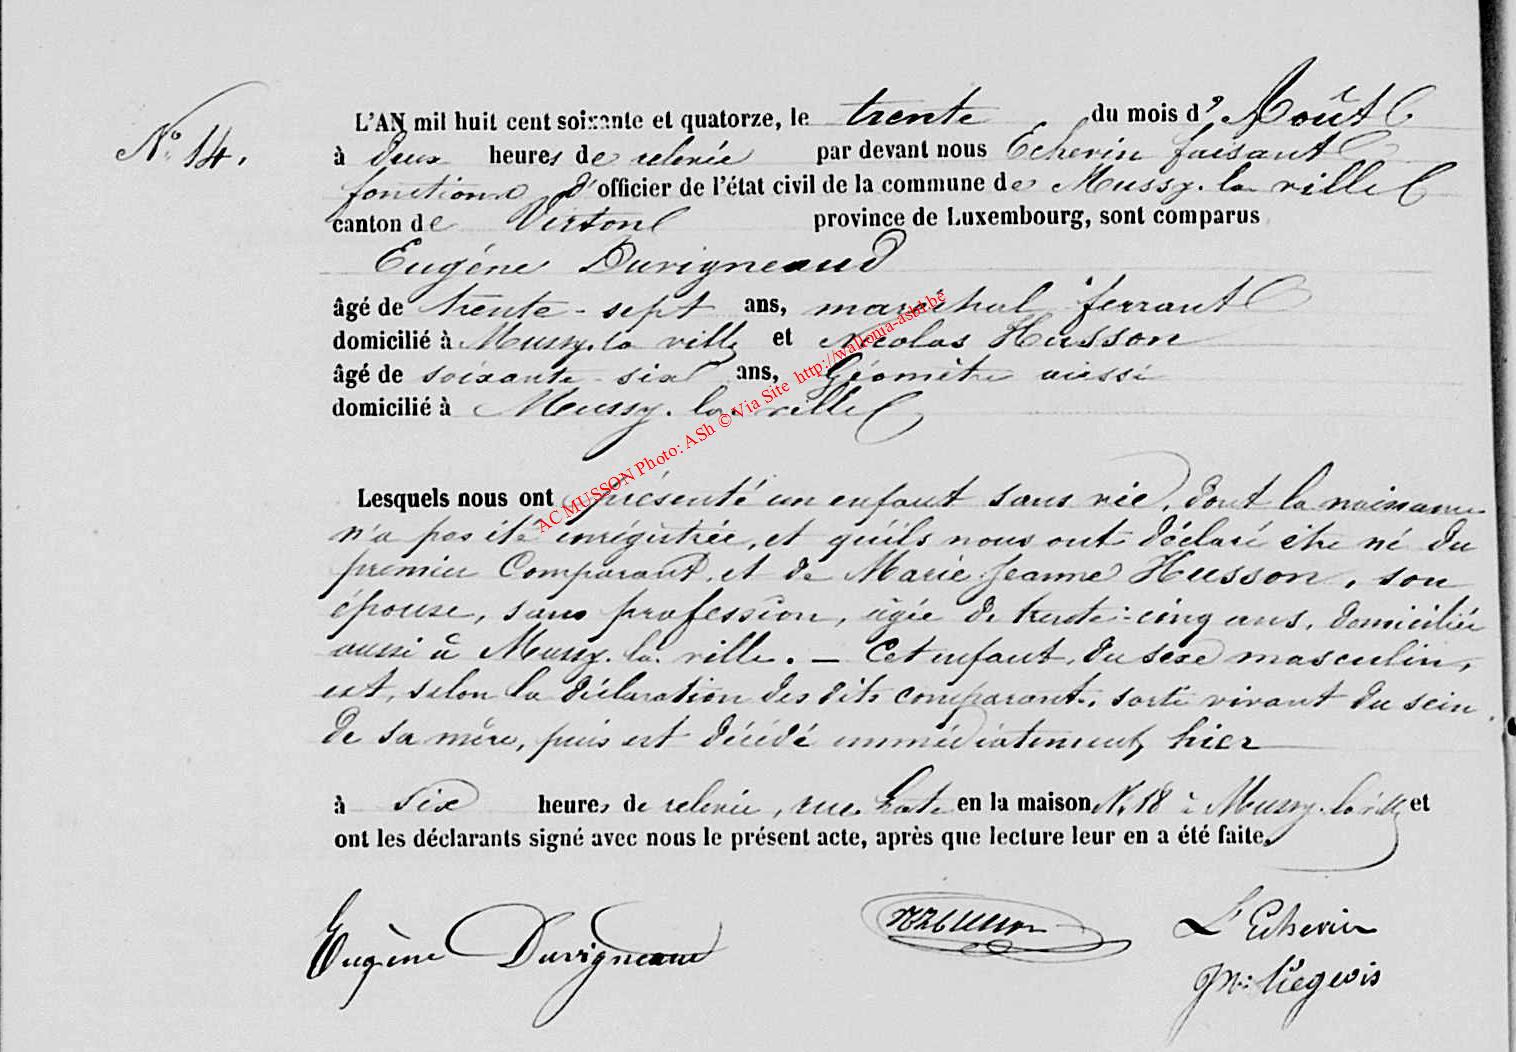 N° 14.
L'AN mil huit cent soixante et quatorze, le trente du mois d' Août
à deux heures de relevée par devant nous Echevin faisant
fonctions d'officier de l'état civil de la commune de Mussy-la-ville
canton de Virton province de Luxembourg, sont comparus
Eugéne Duvigneaud
âgé de trente-sept ans, maréchal ferrant
domicilié à Mussy-la-ville et Nicolas Husson
âgé de soixante-six ans, Géomètre
domicilié à Mussy-la-ville
Lesquels nous ont présenté un enfant sans vie, dont la naissance
n'a pas été enrégistrée, et qu'ils nous ont déclaré être né du
premier Comparant, et de Marie-Jeanne Husson, son
épouse, sans profession, âgée de trente-cinq ans, domiciliée
aussi à Mussy-la-ville. — Cet enfant, du sexe masculin,
est, selon la déclaration des dits comparants, sorti vivant du sein
de sa mère, puis est décédé immédiatement, hier
à six heures de relevée, rue en la maison N. 18 à Mussy-la-ville et
ont les déclarants signé avec nous le présent acte, après que lecture leur en a été faite.
Eugène Duvigneaud
Husson
L'Echevin
Liégeois
AC MUSSON Photo: ASh © Via Site http://wallonia-asbl.be